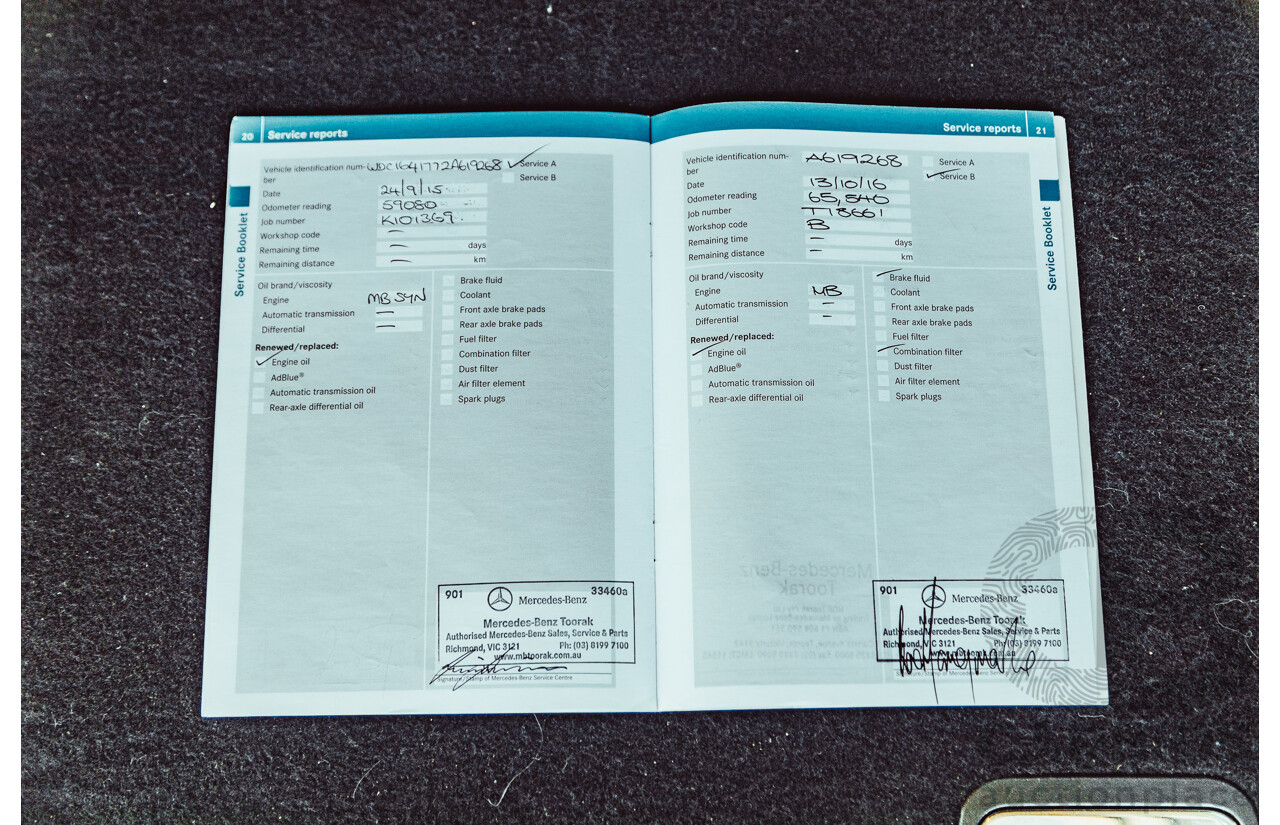 20 Service reports
Vehicle identification num- WDC1641772A619268 Service A
ber Service B
Date 24/9/15
Odometer reading 59080
Job number K101369.
Workshop code –
Remaining time – days
Remaining distance – km
Oil brand/viscosity
Engine MB SYN
Automatic transmission –
Differential –
Renewed/replaced:
Engine oil
AdBlue®
Automatic transmission oil
Rear-axle differential oil
Brake fluid
Coolant
Front axle brake pads
Rear axle brake pads
Fuel filter
Combination filter
Dust filter
Air filter element
Spark plugs
901 33460a
Mercedes-Benz
Mercedes-Benz Toorak
Authorised Mercedes-Benz Sales, Service & Parts
Richmond, VIC 3121 Ph: (03) 8199 7100
www.mbtoorak.com.au
Signature/Stamp of Mercedes-Benz Service Centre
Service Booklet
Service reports 21
Vehicle identification num- A619268 Service A
ber Service B
Date 13/10/16
Odometer reading 65,540
Job number T18661
Workshop code B
Remaining time – days
Remaining distance – km
Oil brand/viscosity
Engine MB
Automatic transmission –
Differential –
Renewed/replaced:
Engine oil
AdBlue®
Automatic transmission oil
Rear-axle differential oil
Brake fluid
Coolant
Front axle brake pads
Rear axle brake pads
Fuel filter
Combination filter
Dust filter
Air filter element
Spark plugs
901 33460a
Mercedes-Benz
Mercedes-Benz Toorak
Authorised Mercedes-Benz Sales, Service & Parts
Richmond, VIC 3121 Ph: (03) 8199 7100
Service Booklet